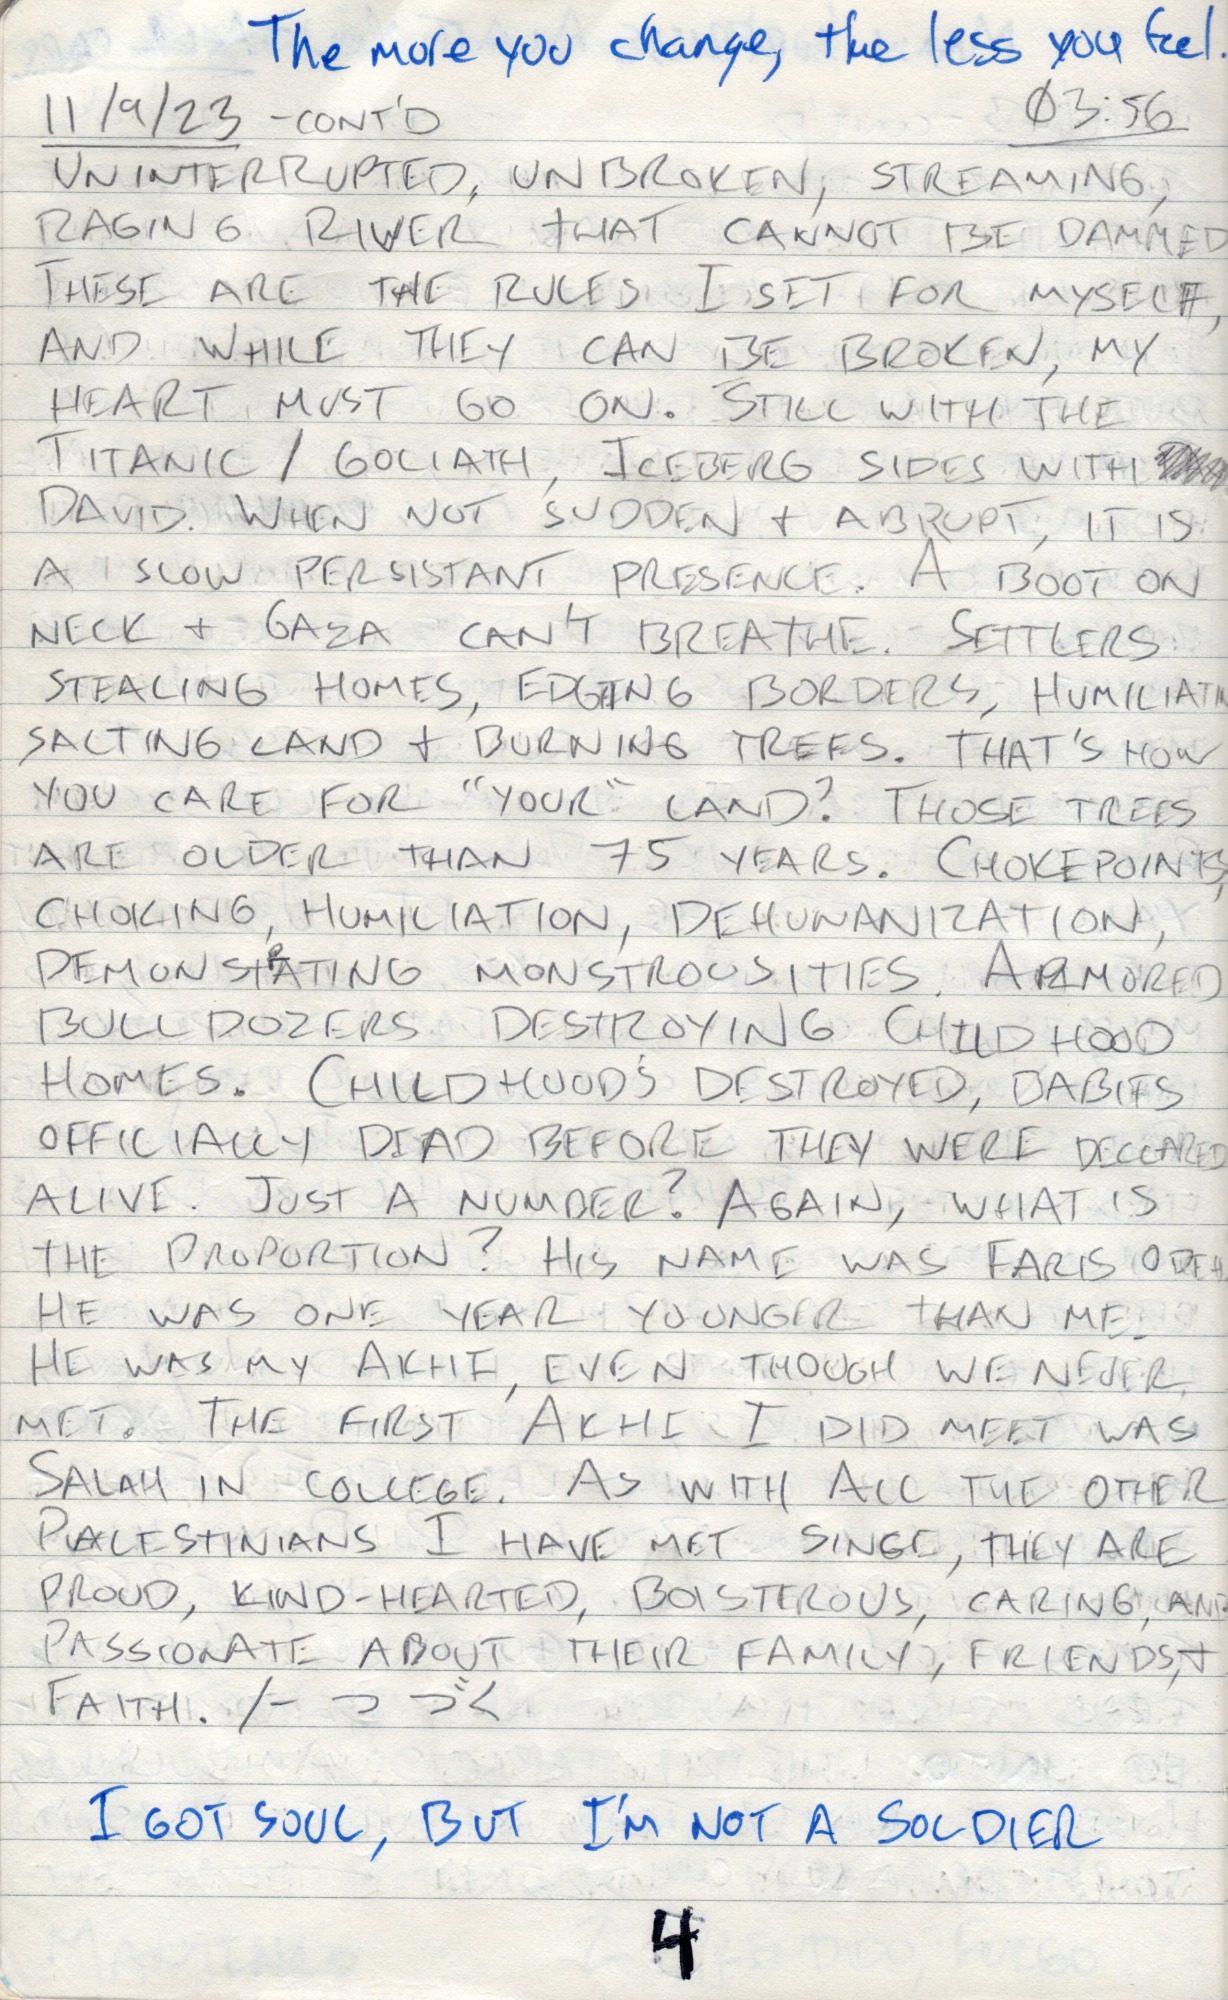 The more you change, the less you feel.
11/9/23 -CONT'D 03:56
UNINTERRUPTED, UNBROKEN, STREAMING,
RAGING RIVER THAT CANNOT BE DAMMED
THESE ARE THE RULES I SET FOR MYSELF,
AND WHILE THEY CAN BE BROKEN, MY
HEART MUST GO ON. STILL WITH THE
TITANIC / GOLIATH, ICEBERG SIDES WITH
DAVID. WHEN NOT SUDDEN + ABRUPT, IT IS
A SLOW PERSISTANT PRESENCE. A BOOT ON
NECK + GAZA CAN'T BREATHE. SETTLERS
STEALING HOMES, EDGING BORDERS, HUMILIATIN
SALTING LAND + BURNING TREES. THAT'S HOW
YOU CARE FOR "YOUR" LAND? THOSE TREES
ARE OLDER THAN 75 YEARS. CHOKEPOINTS,
CHOKING, HUMILIATION, DEHUMANIZATION,
DEMONSTRATING MONSTROUSITIES. ARMORED
BULLDOZERS DESTROYING CHILDHOOD
HOMES. CHILDHOOD'S DESTROYED, BABIES
OFFICIALLY DEAD BEFORE THEY WERE DECLARED
ALIVE. JUST A NUMBER? AGAIN, WHAT IS
THE PROPORTION? HIS NAME WAS FARIS ODEH
HE WAS ONE YEAR YOUNGER THAN ME.
HE WAS MY AKHI, EVEN THOUGH WE NEVER
MET. THE FIRST AKHI I DID MEET WAS
SALAH IN COLLEGE. AS WITH ALL THE OTHER
PALESTINIANS I HAVE MET SINGE, THEY ARE
PROUD, KIND-HEARTED, BOISTEROUS, CARING, AND
PASSIONATE ABOUT THEIR FAMILY, FRIENDS, +
FAITH. /- つづく
I GOT SOUL, BUT I'M NOT A SOLDIER
4